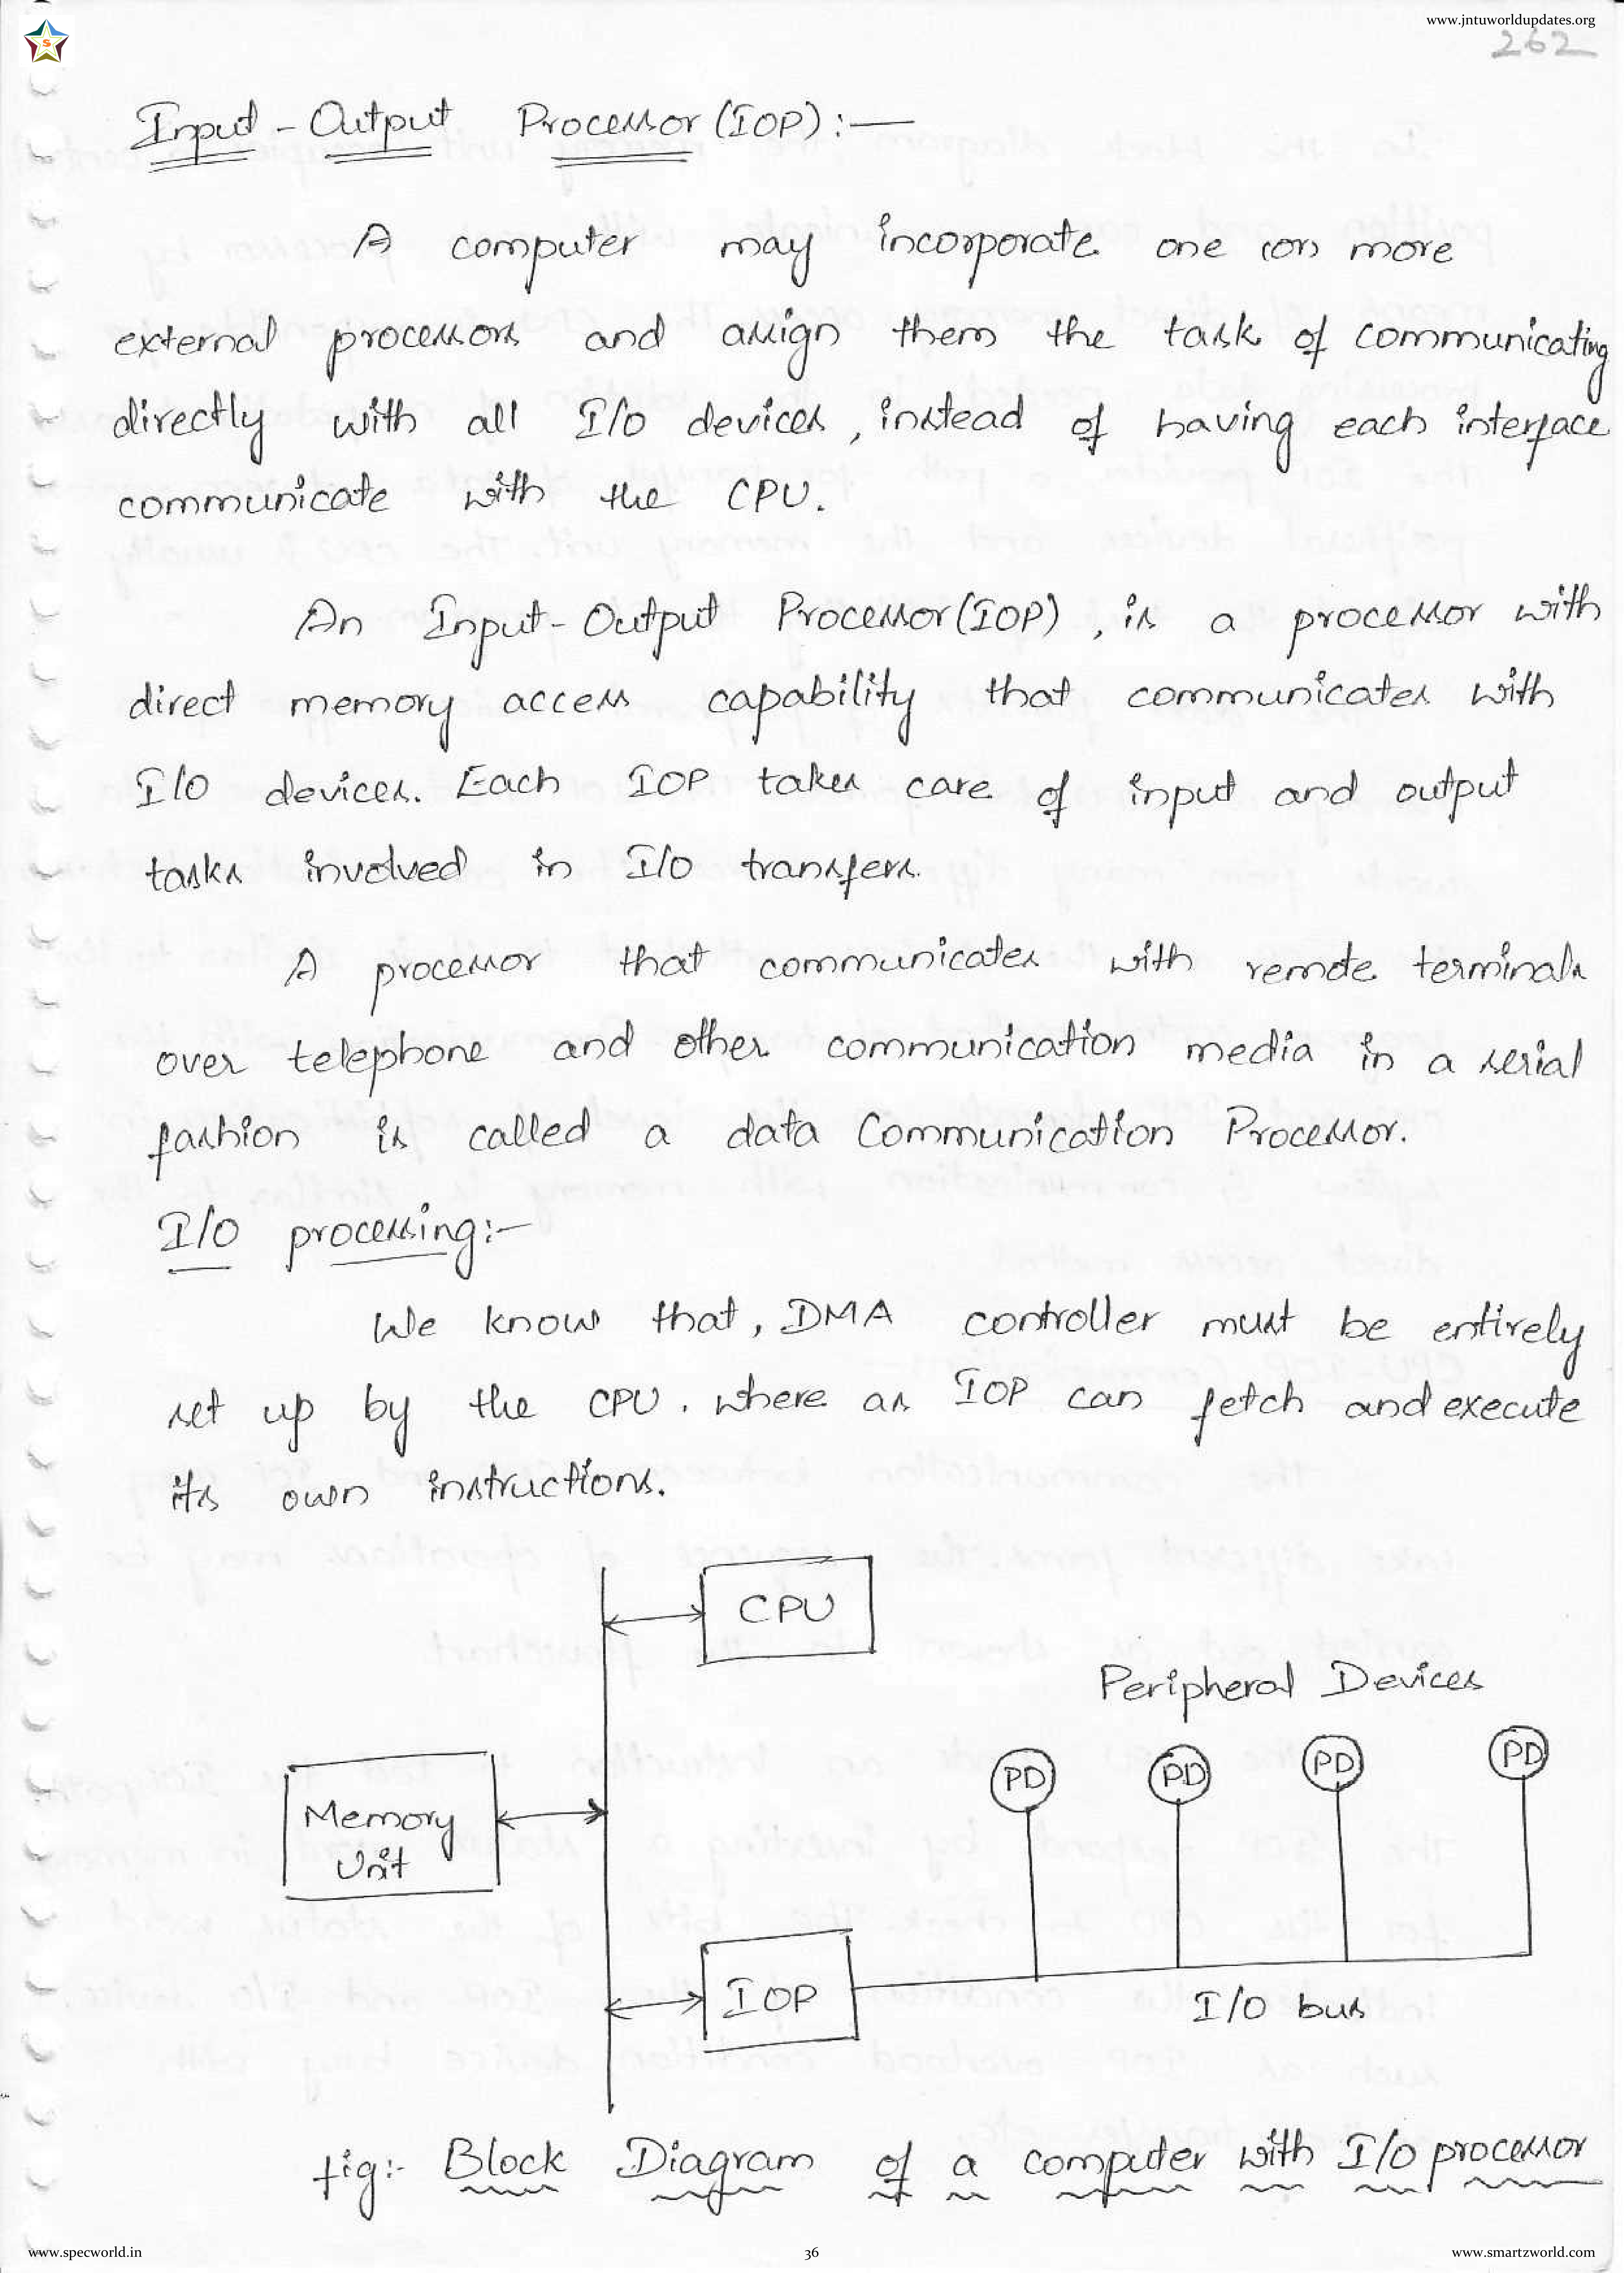 www.jntuworldupdates.org
S
262
Input - Output Processor (IOP) :-
A computer may incorporate one (or) more
external processors and assign them the task of communicating
directly with all I/O devices, instead of having each interface
communicate with the CPU.
An Input-Output Processor (IOP), is a processor with
direct memory access capability that communicates with
I/O devices. Each IOP takes care of input and output
tasks involved in I/O transfers.
A processor that communicates with remote terminals
over telephone and other communication media in a serial
fashion is called a data Communication Processor.
I/O processing:-
We know that, DMA controller must be entirely
set up by the CPU. where as IOP can fetch and execute
its own instructions.
CPU
Peripheral Devices
PD PD PD PD
Memory
Unit
IOP
I/O bus
fig:- Block Diagram of a computer with I/O processor
www.specworld.in
36
www.smartzworld.com